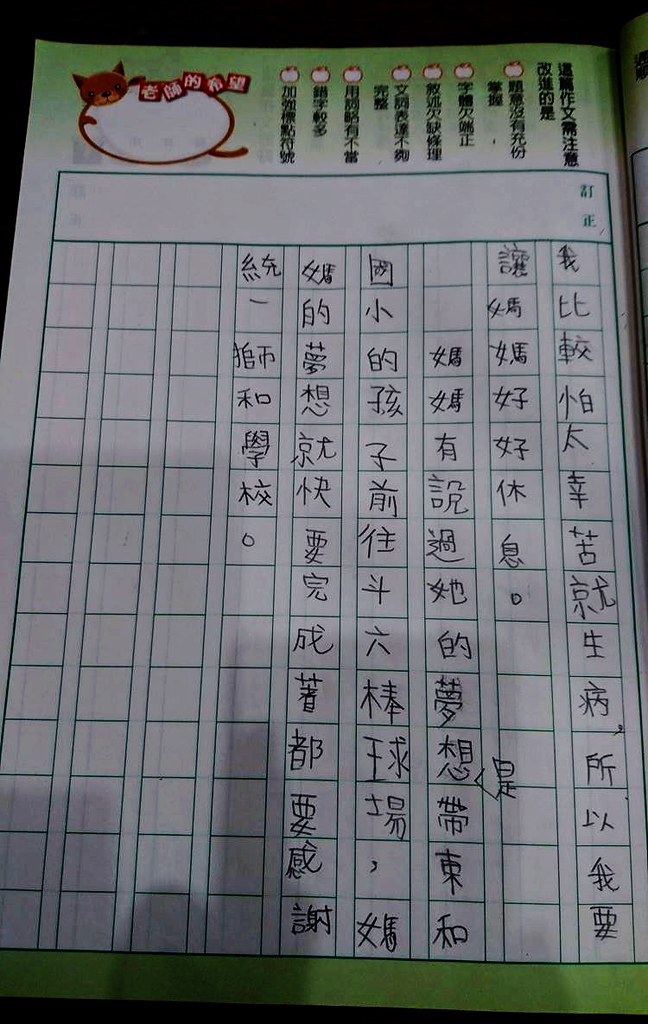 這篇作文需注意
改進的是
題意沒有充份
掌握,
字體欠端正
敘述欠缺條理
文詞表達不夠
完整
用詞略有不當
錯字較多
加強標點符號
老師的希望
訂正
我比較怕太幸苦就生病,所以我要
讓媽媽好好休息。
媽媽有說過她的夢想是帶東和
國小的孩子前往斗六棒球場,媽
媽的夢想就快要完成著都要感謝
統一獅和學校。